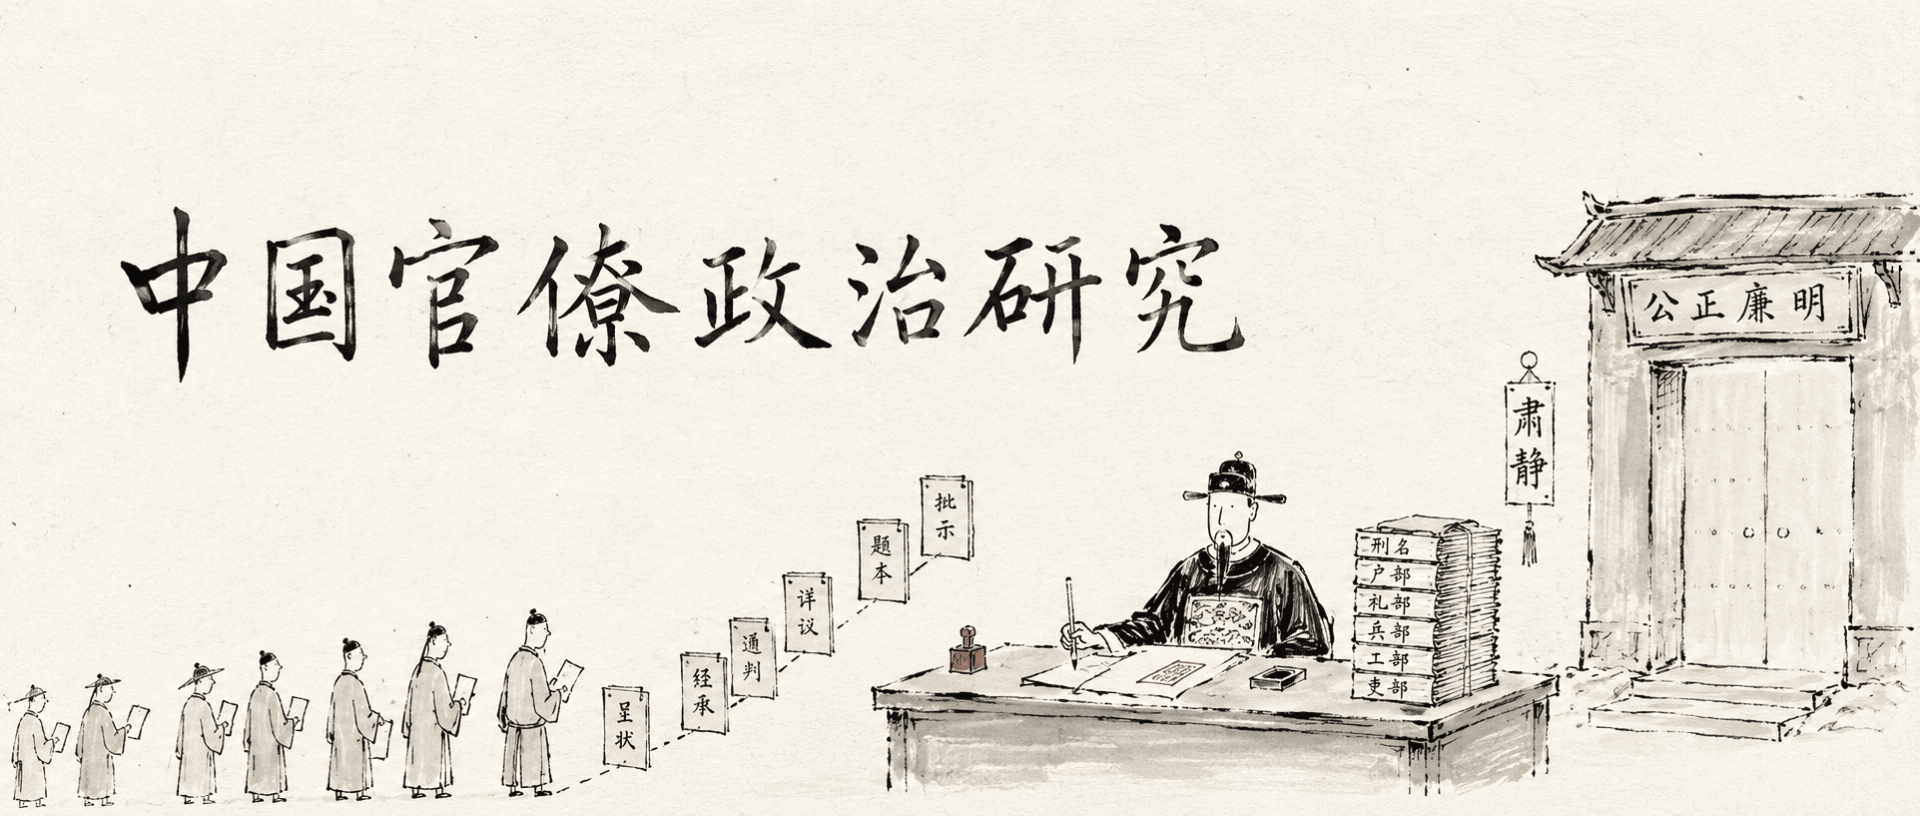 中国官僚政治研究
公正廉明
肃静
批示
题本
详议
通判
经承
呈状
刑名
户部
礼部
兵部
工部
吏部